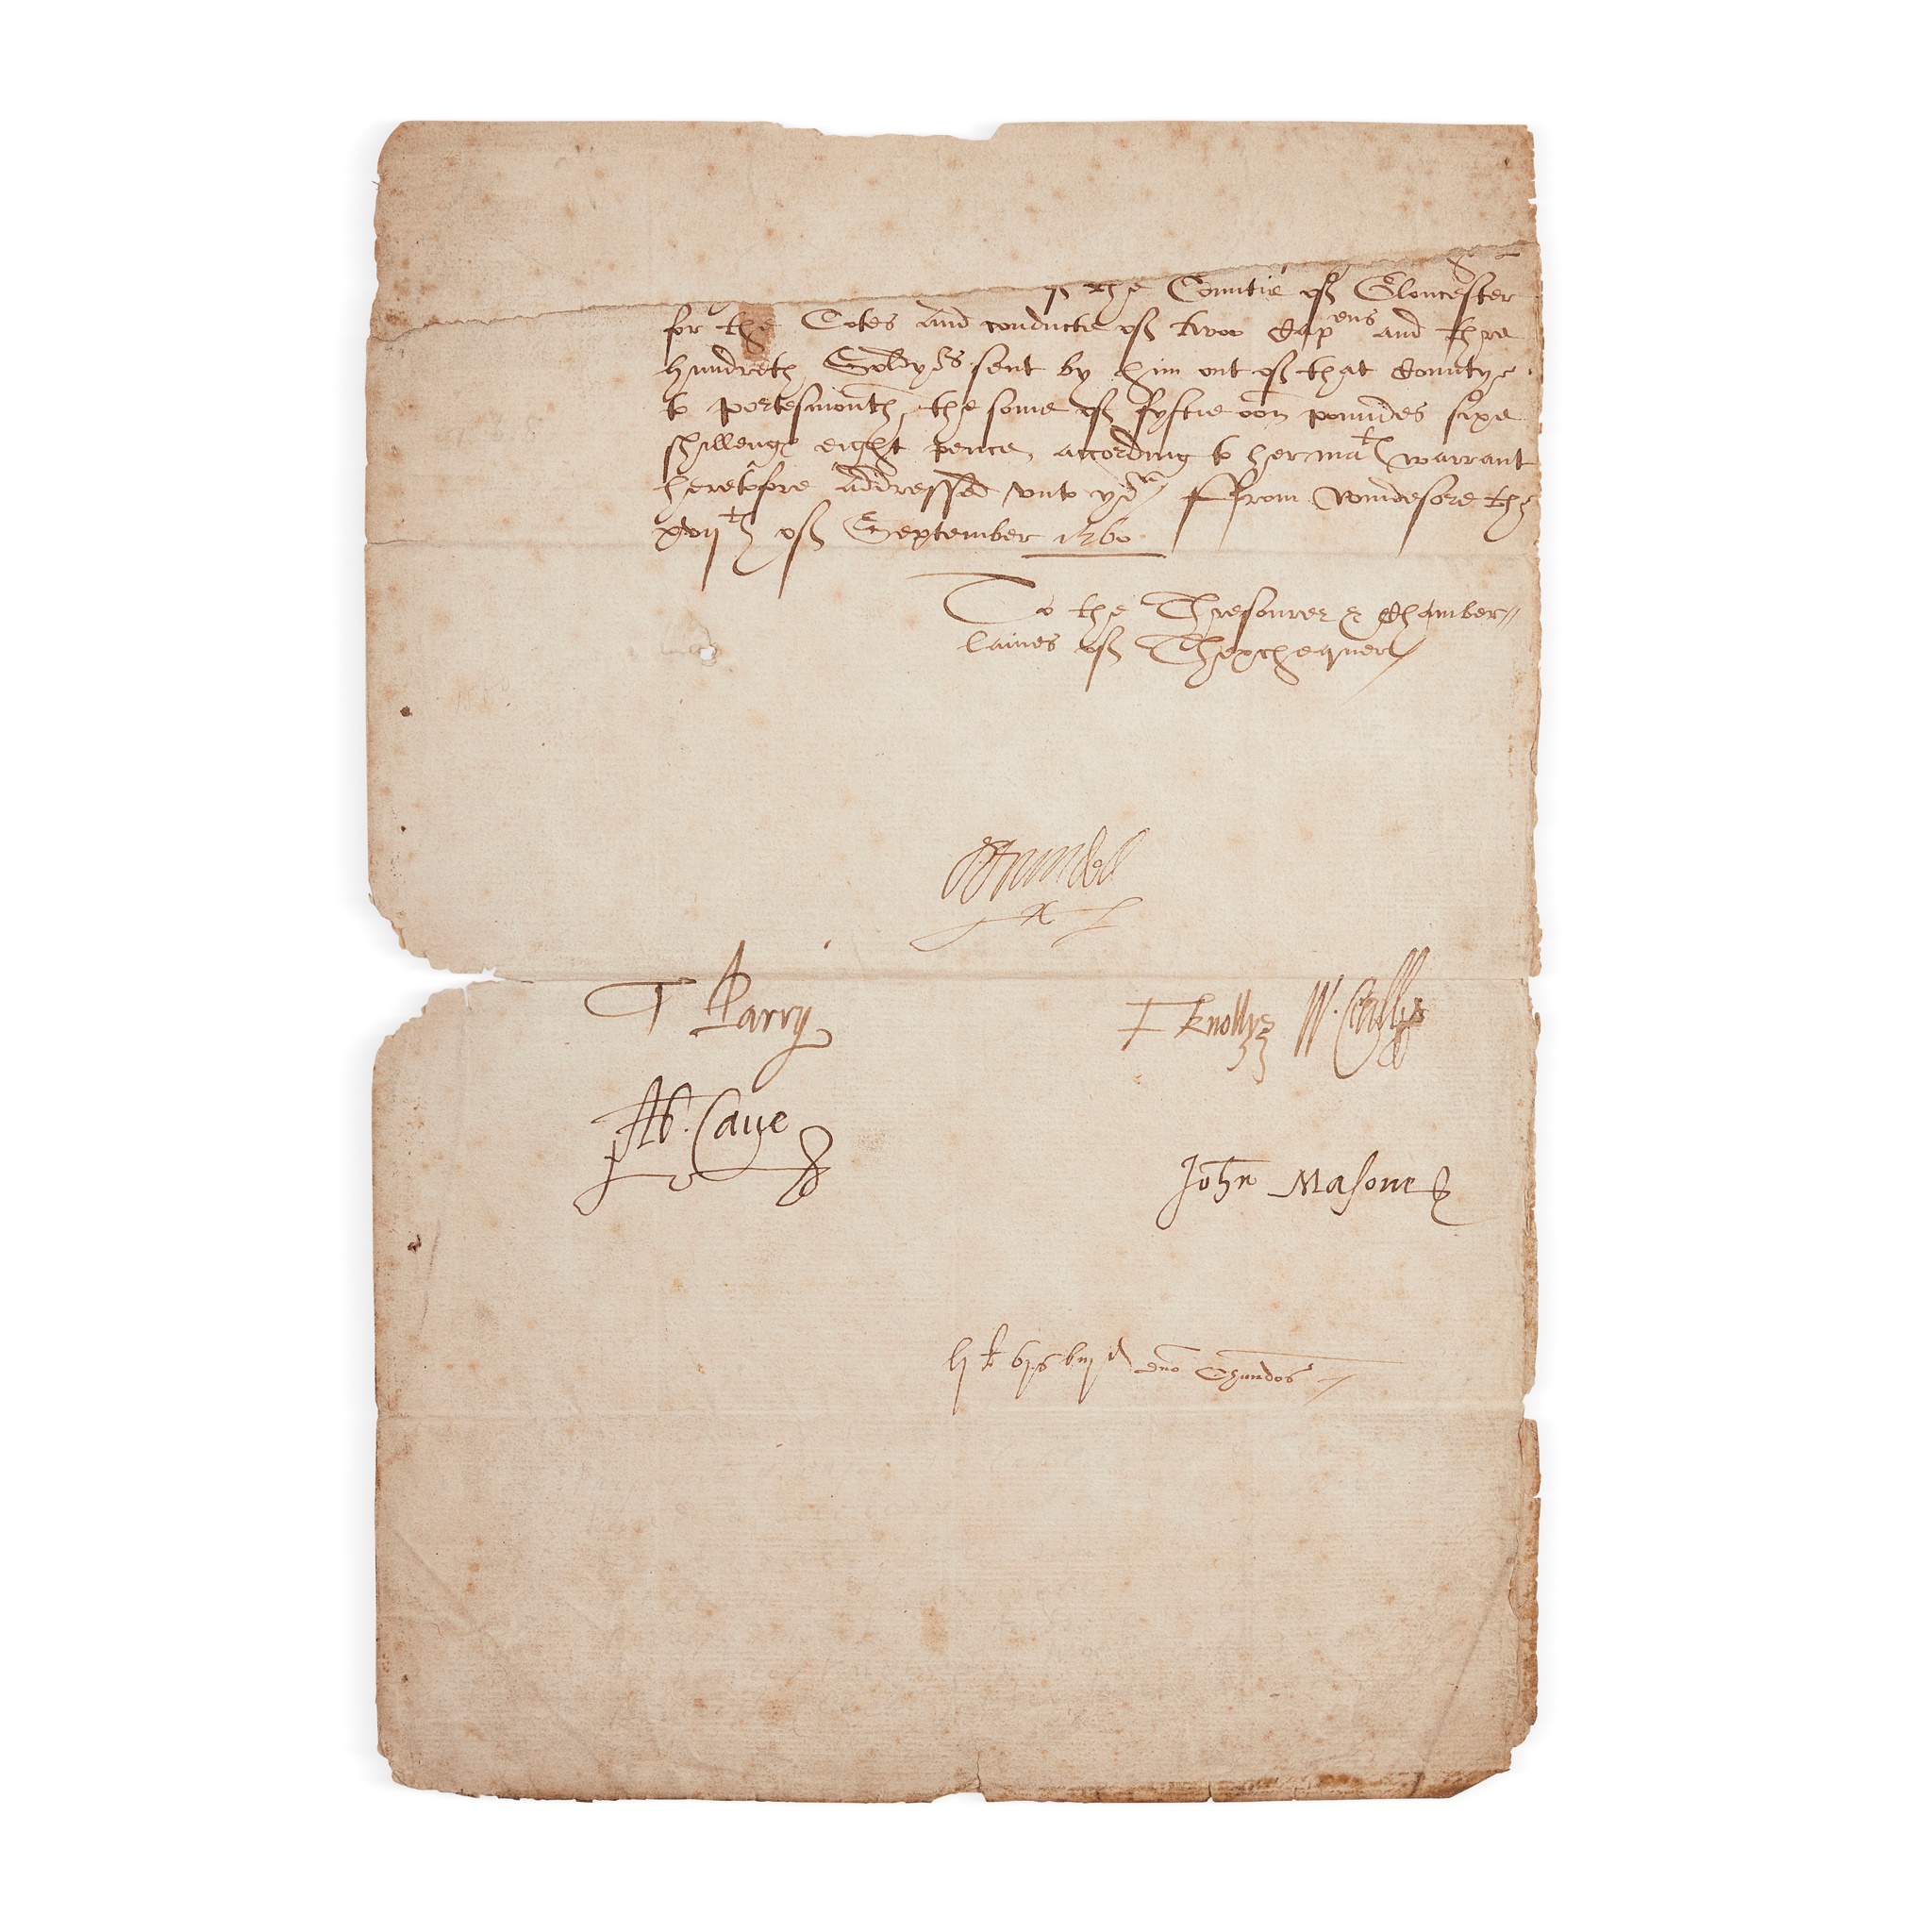 the Countie of Gloucester
for the Cotes and conducte of twoo Capens and thre
hundreth Soldyrs sent by him out of that Countye
to portesmouth, the some of fyftie oon poundes sixe
shillengs eight pence, according to her mats warrant
heretofore addressed unto you ffrom windesore the
xvijth of September 1560
To the Thresourer & Chamber//
laines of Thexchequer
Arundell
T Parry
F Knollys
Ab. Cave
John Masone
dno Chandos